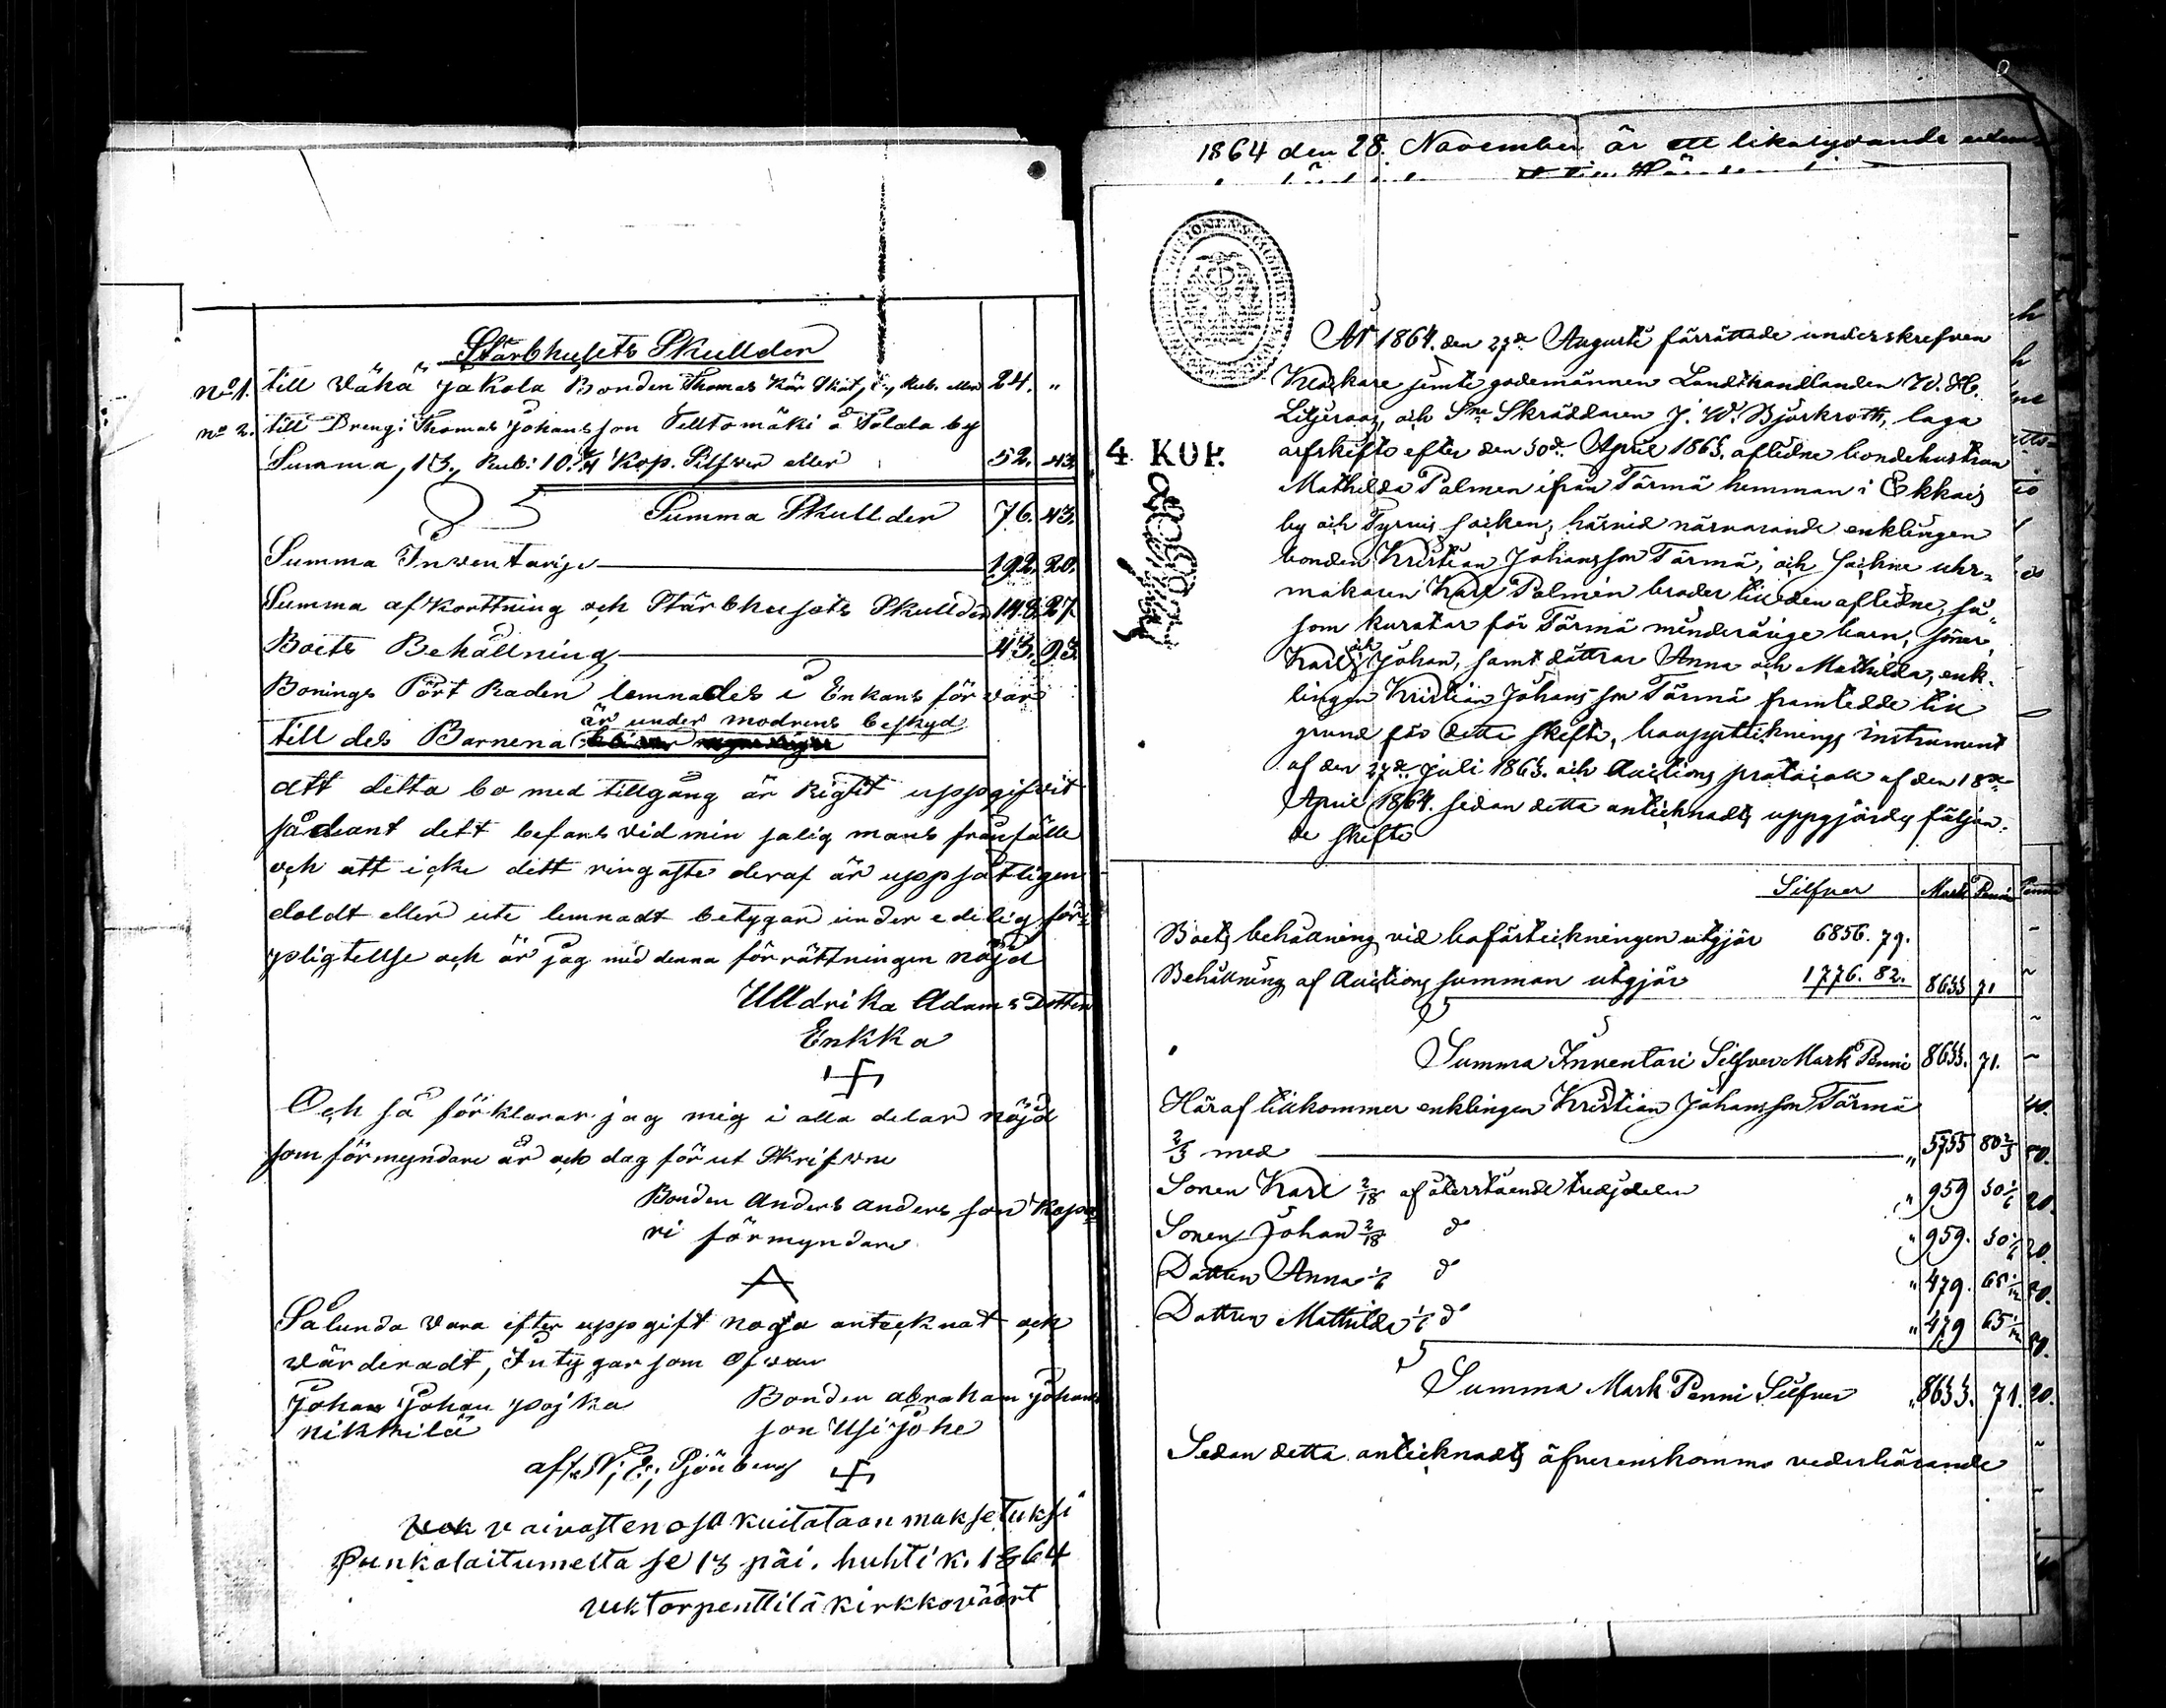 Stärbhusets Skullder
No 1. till Vähä Jakola Bonden Thomas Kär Skat, 6, Rub. eller 24. "
no 2. till Dreng: Thomas Johansson Telltomäki å Palala by
Summa, 13, Rub: 10. 3/4 Kop. Silfver eller 52. 43.
Summa Skullder 76. 43.
Summa Inventarje 192. 20.
Summa afkorttning och Stärbhusets Skullder 148. 27
Boets Behållning 43. 93.
Bonings Pört Raden lemnades i Enkans för var
är under modrens beskyd
till des Barnena
att detta bo med tillgång är Rigtit uppgifvit
sådeant dett befans vid min salig mans frånfälle
och att icke dett ringaste deraf är uppsåtligen
doldt eller ute lemnadt betygar under edelig för
pligtellse och är jag med denna förrättningen nöjd
Ulldrika Adams Dotter
Enkka
Och så förklarar jag mig i alla delar nöjd
som förmyndare år och dag för ut Skrifvne
Bonden Anders Anders son Kopa
ri förmyndare
Sålunda vara efter uppgift noga antecknat och
värderadt, Intygar som Ofvan
Johan Johan pojka Bonden abraham Johans
nikkilä son Usi Johe
af N; E; Sjöuberg
vaivasten osa kuitataan maksetuksi
Punkalaitumella se 13 päi. huhti k. 1864
viktor penttilä kirkkoväärt
1864 den 28. November är ett likalydande
4 KOP.
År 1864. den 27de Augusti förrättade underskrefven
Kläckare jemte godemännen Landthandlanden W. Hb.
Liljeroos, och Sne Skräddaren J. W. Björkroth, laga
arfskifte efter den 30de April 1863. aflidne bondehustrun
Mathilda Palmen ifrån Tärmä hemman i Ekkais
by och Tyrvis socken, härvid närvarande enklingen
bonden Kristian Johansson Tärmä, och sockne uhr-
makaren Karl Palmén broder till den aflidne, så
som kurator för Tärmä minderårige barn, söner,
och
Karl Johan, samt döttrar Anna och Mathilda, enk-
lingen Kristian Johansson Tärmä framtedde till
grund för dette skifte, bouppteknings instrument
af den 27de Juli 1863. och Auctions protocoll af den 18de
April 1864. sedan detta antecknadts uppgjördes följan-
de skifte
Silfver Mark Penni
Boets behållning vid boförteckningen utgjör 6856. 79.
Behållning af Auctions summan utgjör 1776. 82. 8633 71
Summa Inventari Silfver Mark Penni 8633. 71.
Häraf tillkommer enklingen Kristian Johansson Tärmä
2/3 med " 5755 80 2/3
Sonen Karl 2/18 af återstående tredjedelen " 959 30 1/6
Sonen Johan 2/18 do " 959. 30 1/6
Dottren Anna 1/6 do " 479. 65 1/12
Dottren Mathilda 1/6 do " 479 65 1/12
Summa Mark Penni Silfver " 8633. 71.
Sedan detta antecknadts öfverenskommo vederbörande